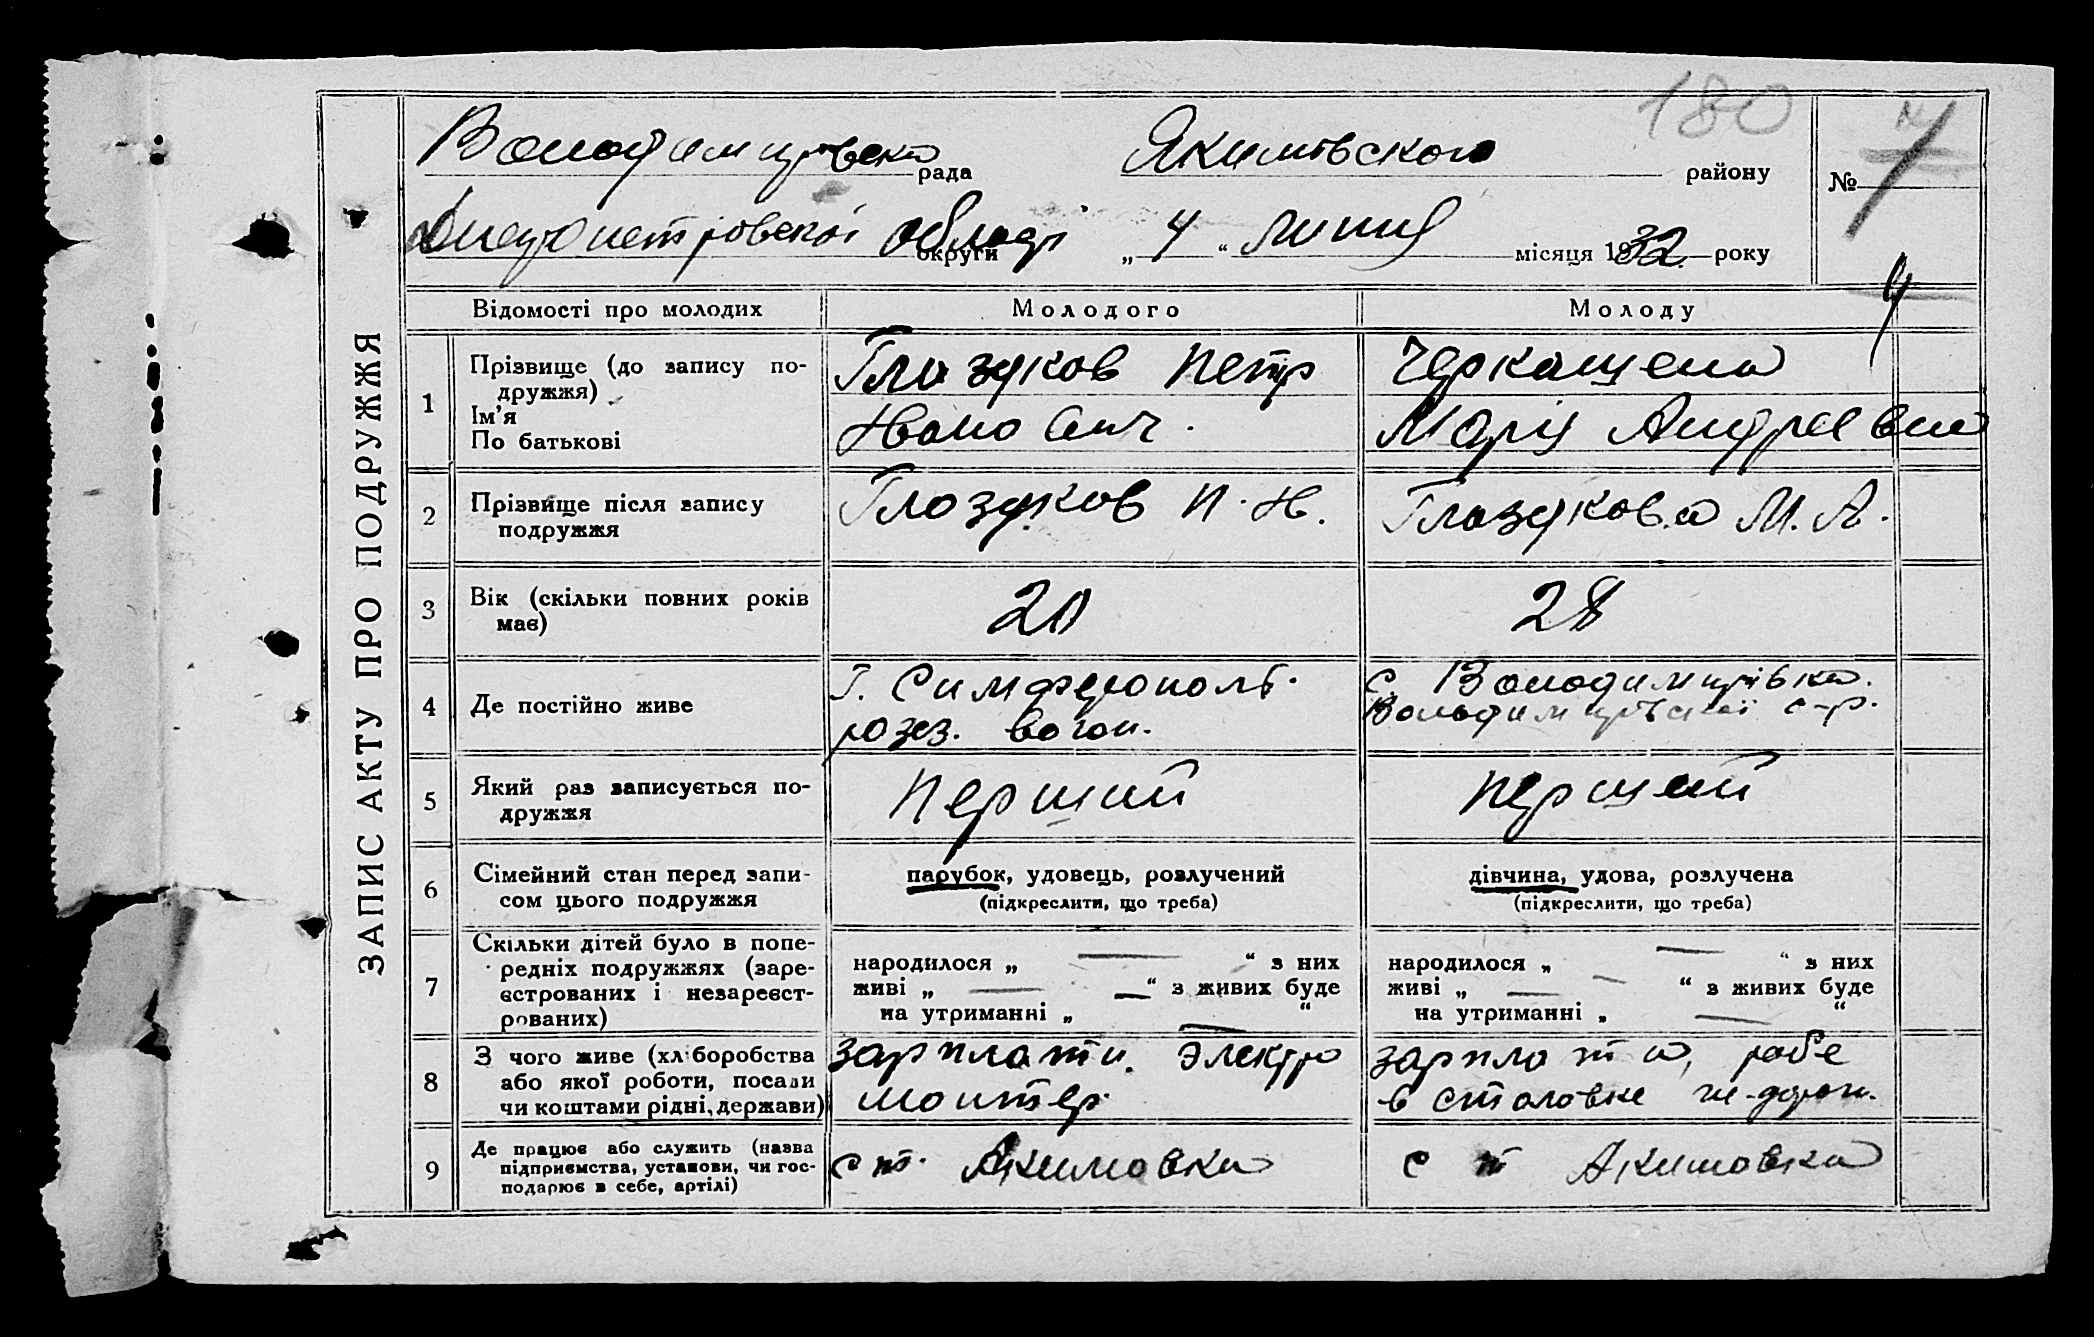 180
Володимирвска рада Якимівского району № 7
Днепропетровскоі області округи „ 4 “ липня місяця 1932 року
4
ЗАПИС АКТУ ПРО ПОДРУЖЖЯ
Відомості про молодих Молодого Молоду
1 Прізвище (до запису по-
дружжя)
Ім’я
По батькові
Глазуков Петр
Ивано вич.
Черкашена
Марія Андреевна
2 Прізвище після запису
подружжя
Глазуков П. И.
Глазукова М. А.
3 Вік (скільки повних років
має)
20
28
4 Де постійно живе
Г. Симферополь.
розез. вагон.
с. Володимирівка.
Вольодимирівскоі с-р.
5 Який раз записується по-
дружжя
Перший
Перший
6 Сімейний стан перед запи-
сом цього подружжя
парубок, удовець, розлучений
(підкреслити, що треба)
дівчина, удова, розлучена
(підкреслити, що треба)
7 Скільки дітей було в попе-
редніх подружжях (заре-
єстрованих і незареєст-
рованих)
народилося „ — “ з них
живі „ — “ з живих буде
на утриманні „ — “
народилося „ — “ з них
живі „ — “ з живих буде
на утриманні „ — “
8 З чого живе (хліборобства
або якої роботи, посади
чи коштами рідні, держави)
зарплати. Электро
монтер.
зарплата, робе
в столовке же-дорож.
9 Де працює або служить (назва
підприємства, установи, чи гос-
подарює в себе, артілі)
ст. Акимовка
ст Акимовка